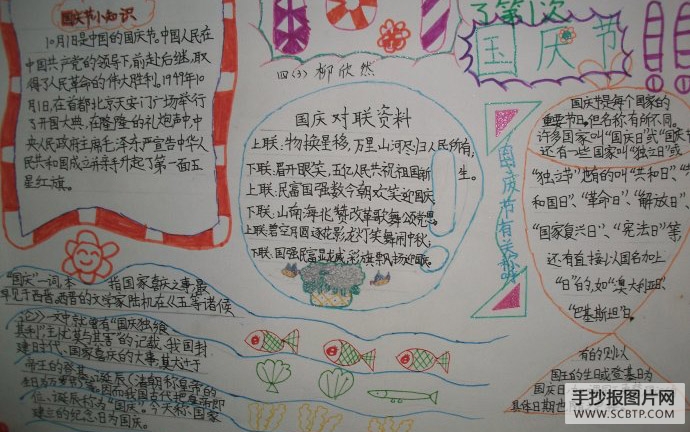 国庆节小知识
10月1日是中国的国庆节。中国人民在
中国共产党的领导下,前赴后继,取
得了人民革命的伟大胜利。1949年10
月1日,在首都北京天安门广场举行
了开国大典,在隆隆的礼炮声中,中
央人民政府主席毛泽东严宣告中华人
民共和国成立并亲手升起了第一面五
星红旗。
四(3)柳欣然
了第1次
国庆节
国庆对联资料
上联:物换星移,万里山河尽归人民所有,
下联:眉开眼笑,五亿人民共祝祖国新生。
上联:民富国强数今朝欢笑迎国庆,
下联:山南海北赞改革歌舞颂党恩,
上联:碧空月圆逐花影龙灯笑舞闹中秋,
下联:国强民富显龙威彩旗飘扬迎
国庆节有关
国庆节是每个国家的
重要节日,但名称有所不同。
许多国家叫"国庆日"或"国庆节"
还有一些国家叫"独立日"或
"独立节"也有的叫"共和日"、"共
和国日"、"革命日"、"解放日"、
"国家复兴日"、"宪法日"等
还有直接以国名加上
"日"的,如"澳大利亚日"、
"巴基斯坦日"。
有的则以
国王的生日或登基日为
国庆日
具体日期也
"国庆"一词,本 指国家喜庆之事,最
早见于西晋。西晋的文学家陆机在《五等诸侯
论》一文中就曾有"国庆独飨
其利,主忧莫与其害"的记载、我国封
建时代、国家喜庆的大事,莫大过于
帝王的登基、诞辰(清朝称皇帝的
生日为万岁
位、诞辰称为"国庆"。今天称、国家
建立的纪念日为国庆。
手抄报图片网
WWW.SCBTP.COM